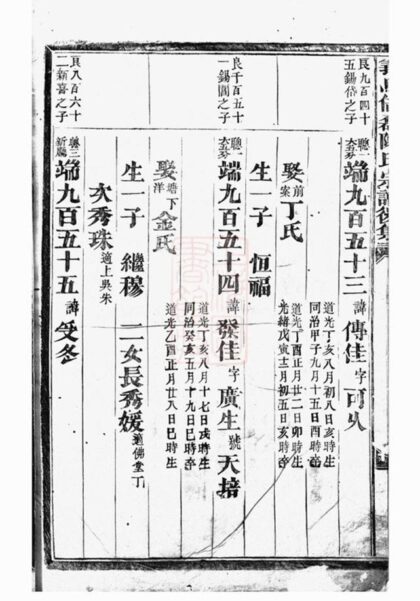 義門倍磊陳氏宗譜後集
良九百四十
五錫岱之子
聰一
端九百五十三 諱傳佳 字可久
道光丁亥八月初八日亥時生
同治甲子九月十五日酉時卒
娶前案丁氏
道光丁酉正月廿二日卯時生
光緒戊寅十二月初五日亥時卒
生一子 恒福
良千百五十
一錫閣之子
聰一
端九百五十四 諱發佳 字廣生 號天培
道光丁亥八月十七日戌時生
同治癸亥五月十九日巳時卒
娶塘下洋金氏
道光乙酉正月廿八日巳時生
生一子 繼穆 二女長秀媛適佛堂丁
次秀珠適上吳朱
良八百六十
二新喜之子
端九百五十五 諱受冬